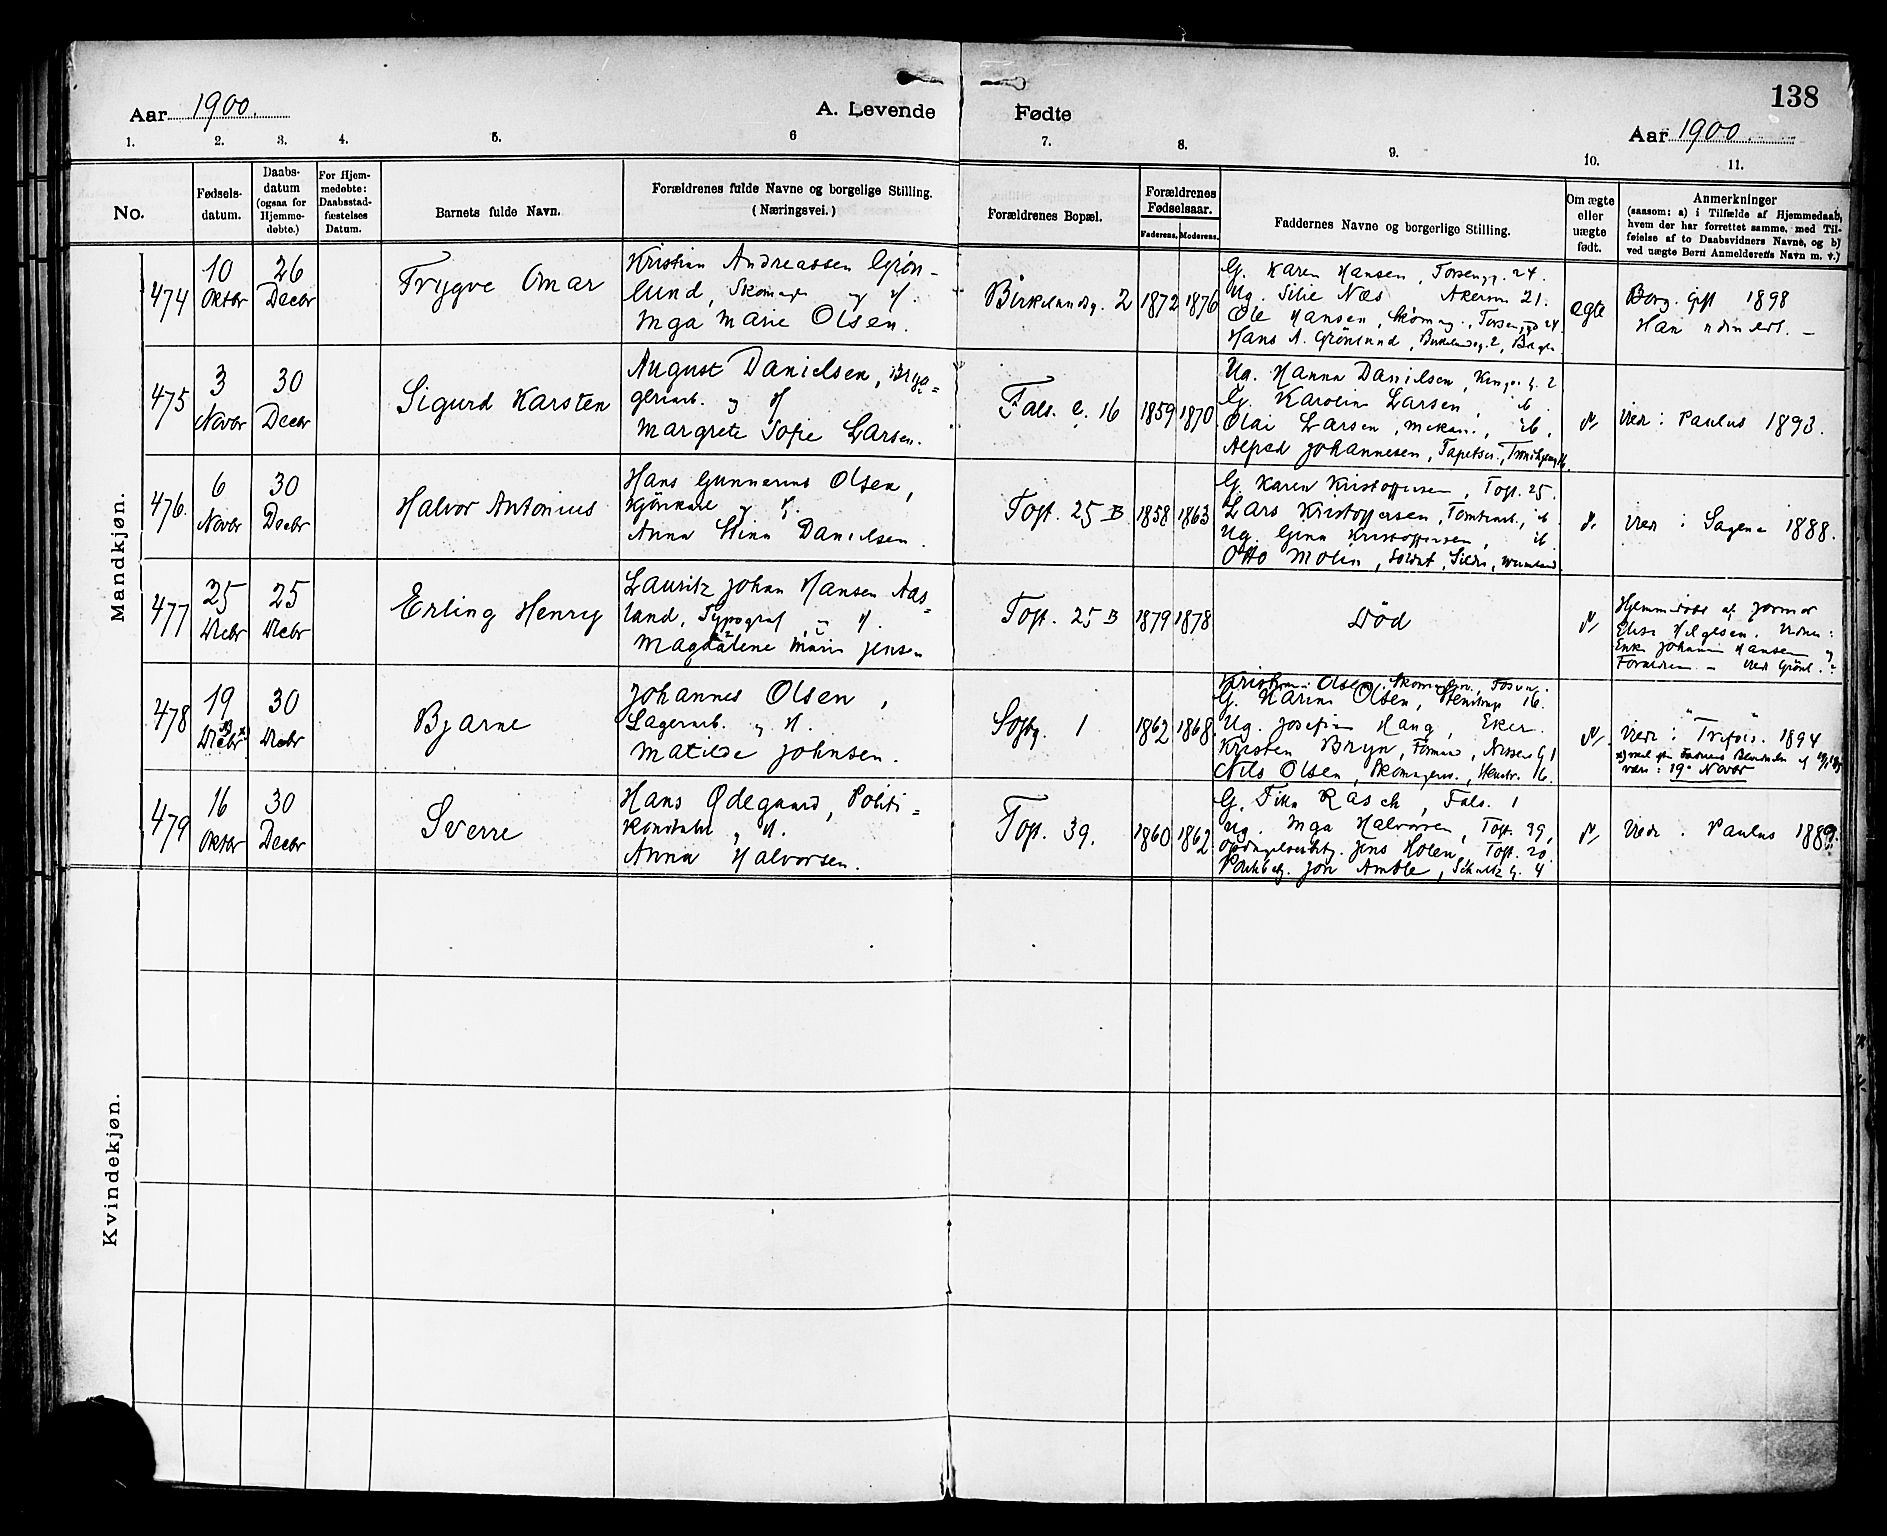 138
Aar 1900.
A. Levende Fødte
Aar 1900.
1. 2. 3. 4. 5. 6 7. 8. 9. 10. 11.
No.
Fødsels-
datum.
Daabs-
datum
(ogsaa for
Hjemme-
døbte.)
For Hjem-
medøbte:
Daabsstad-
fæstelses
Datum.
Barnets fulde Navn.
Forældrenes fulde Navne og borgelige Stilling.
(Næringsvei.)
Forældrenes Bopæl.
Forældrenes
Fødselsaar.
Faderens. Moderens.
Faddernes Navne og borgerlige Stilling.
Om ægte
eller
uægte
født.
Anmerkninger
(saasom: a) i Tilfælde af Hjemmedaab,
hvem der har forrettet samme, med Til-
føielse af to Daabsvidners Navne, og b)
ved uægte Børn Anmelderens Navn m. v.)
Mandkjøn.
474
10
Oktbr
26
Decbr
Trygve Omar
Kristian Andreassen Grøn-
lund, Skomag. og H.
Inga Marie Olsen.
Birkelundg. 2
1872 1876
G. Karen Hansen, Torseng. 24.
Ug. Silie Næs Akersv 21.
Ole Hansen, Skomag., Torseng 24
Hans A. Grønlund, Birkelundg. 2,
ægte
Borg. Gift 1898
Han
475
3
Novbr
30
Decbr
Sigurd Karsten
August Danielsen, Bryg-
geriarb. og H
Margrete Sofie Larsen.
Fals. C. 16
1859 1870
Ug. Hanna Danielsen, 2
G. Karolin Larsen, ib.
Olai Larsen, Mekan., ib.
Alfred Johannesen, Tapetser.,
Viet: Paulus 1893.
476.
6
Novbr
30
Decbr
Halvor Antonius
Hans Gunnerius Olsen,
og H.
Anna Stina Danielsen.
Toft. 25 B
1858 1863
G. Karen Kristoffersen, Toft. 25.
Lars Kristoffersen, Tomtearb., ib.
Ug. Gina Kristoffersen, ib
Otto Molin, Soldat,
Viet i Sagene 1888.
477
25
Decbr
25
Decbr
Erling Henry
Lauritz Johan Hansen Aas-
land, Typograf og H.
Magdalene Marie Jensen
Toft. 25 B
1879 1878
Død
Hjemmedøbt af Jormor
Elise Helgesen. Vidner:
Enke Johanne Hansen og
Forældren. Viet Grønl.
478
19
Decbr x)
30
Decbr
Bjarne
Johannes Olsen,
Lagerarb. og H.
Matilde Johnsen.
Softg. 1
1862 1868.
Olsen, Skomagersv.,
G. Karine Olsen, 16.
Ug. Josefine Haug, Eker.
Kristen Bryn, Formand,
Nils Olsen, Skomagersv., 16.
Viet: 1894
være: 19 Novbr
479
16
Oktbr
30
Decbr
Sverre
Hans Ødegaard, Politi-
konstabel og H.
Anna Halvorsen.
Toft. 39.
1860 1862
G. Tina Rasch, Fals. 1
Ug. Inga Halvorsen, Toft. 39,
Jens Holen, Toft. 20.
Jon Amble, Schultz g. 4
Viet. Paulus 1889.
Kvindekjøn.